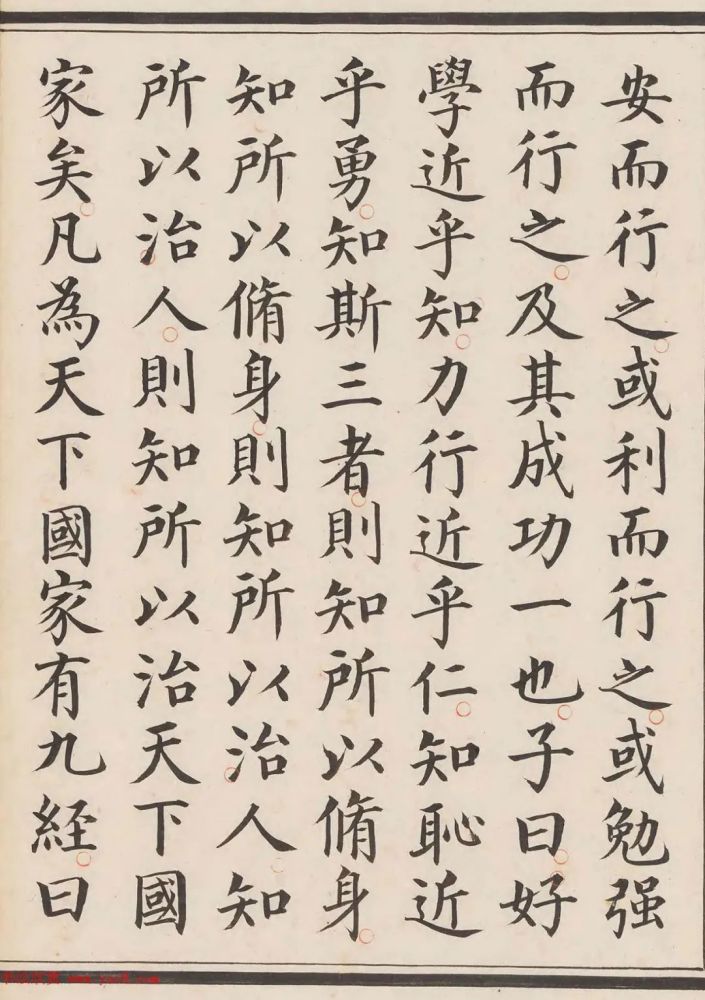 安而行之或利而行之或勉强
而行之及其成功一也子曰好
學近乎知力行近乎仁知恥近
乎勇知斯三者則知所以脩身
知所以脩身則知所以治人知
所以治人則知所以治天下國
家矣凡為天下國家有九経曰